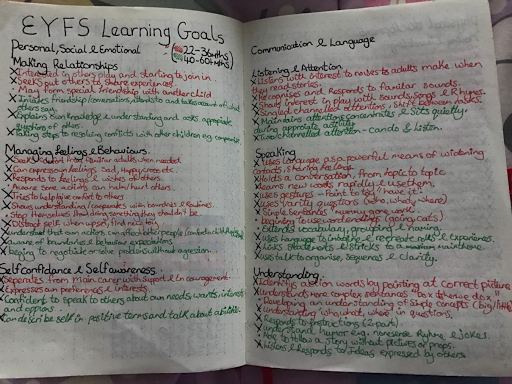 EYFS Learning Goals
22-36mths
40-60+mths
Personal, Social & Emotional
Making Relationships
X Interested in others play and starting to join in
X Seeks out others to share experiences
• May form special friendship with another child
X Initiates friendship/conversation, attends to and takes account of what
others say.
X Explains own knowledge & understanding and asks appropriate
questions of others.
X Taking steps to resolving conflicts with other children eg. compromise
Managing feelings & Behaviours.
X Seeks comfort from familiar adults when needed
X Can express own feelings Sad, Happy, cross etc.
X Responds to feelings & wishes of others
X Aware some actions can hurt/hurt others.
X Tries to help/give comfort to others
X Shows understanding/cooperates with boundries & routines.
Stop themselves from doing something they shouldn't be.
Distract self when upset,
Understand that own actions may affect other people
X Aware of boundaries & behaviour expectations
X Begining to negotiate or solve problems without agression.
Self confidance & Self awareness
X Seperates from main carer with support & encouragement.
X Expresses own preferences & interests.
X Confident to speak to others about own needs, wants, interests
and opinions.
X Can describe self in positive terms and talk about abilities.
Communication & Language
Listening & Attention
X Listens with interest to noises to adults make when
they read stories.
X Recognises and Responds to familiar sounds.
X Shows interest in play with sounds, Songs & Rhymes.
X Singled channelled attention, Shift between tasks.
X Maintains attention, concentrates & Sits quietly,
during appropriate activity.
X Two channelled attention - can do & Listen.
Speaking
X Uses language as a powerful means of widening
contacts, sharing feelings
X Holds a conversation, from topic to topic
X Learns new words rapidly & use them.
X Uses gestures - Point to 'tell/have it'.
X Uses variety questions (who, what, where)
X Simple Sentences mummy gone work
X begining to use word endings (going, cats)
X Extends vocabulary, grouping & naming.
X Uses language to imagine & recreate roles & experiences.
X Links statements & sticks to a main theme
X Uses talk to organise, Sequences & clarify.
Understanding.
X Identifys action words by pointing at correct picture
X Understands more complex sentances
X Developing an understanding of simple concepts (big/little)
X Understanding who, what, where in questions.
X Responds to instructions (2-part)
X Understand humor e.g. nonsense Rhymes & jokes.
X Able to follow a story without pictures or props.
X Listens & responds to ideas expressed by others